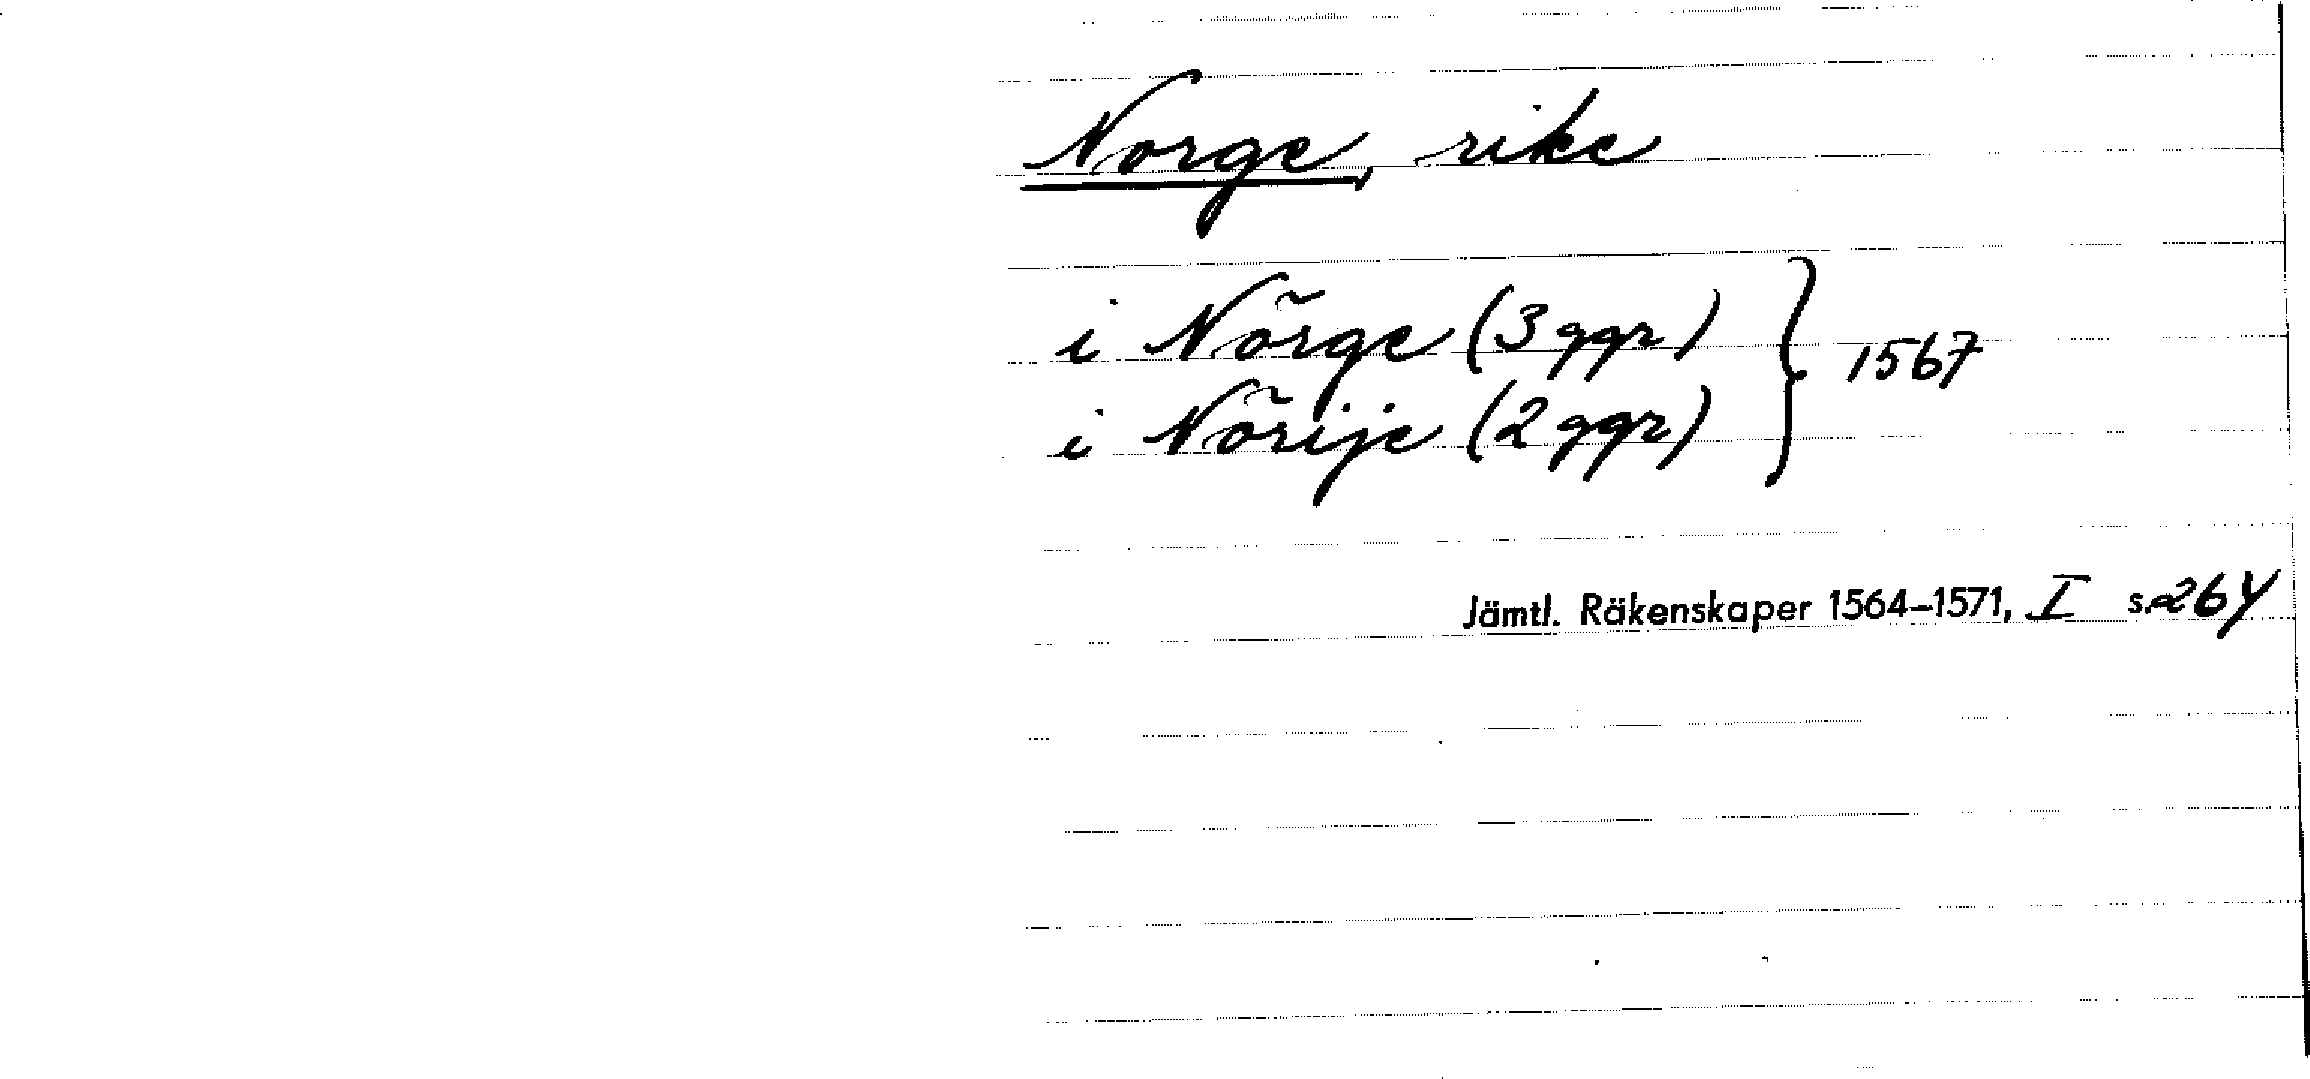 Norge, rike
i Nõrge (3 ggr)
i Nõrije (2 ggr) } 1567
Jämtl. Räkenskaper 1564–1571, I s. 264